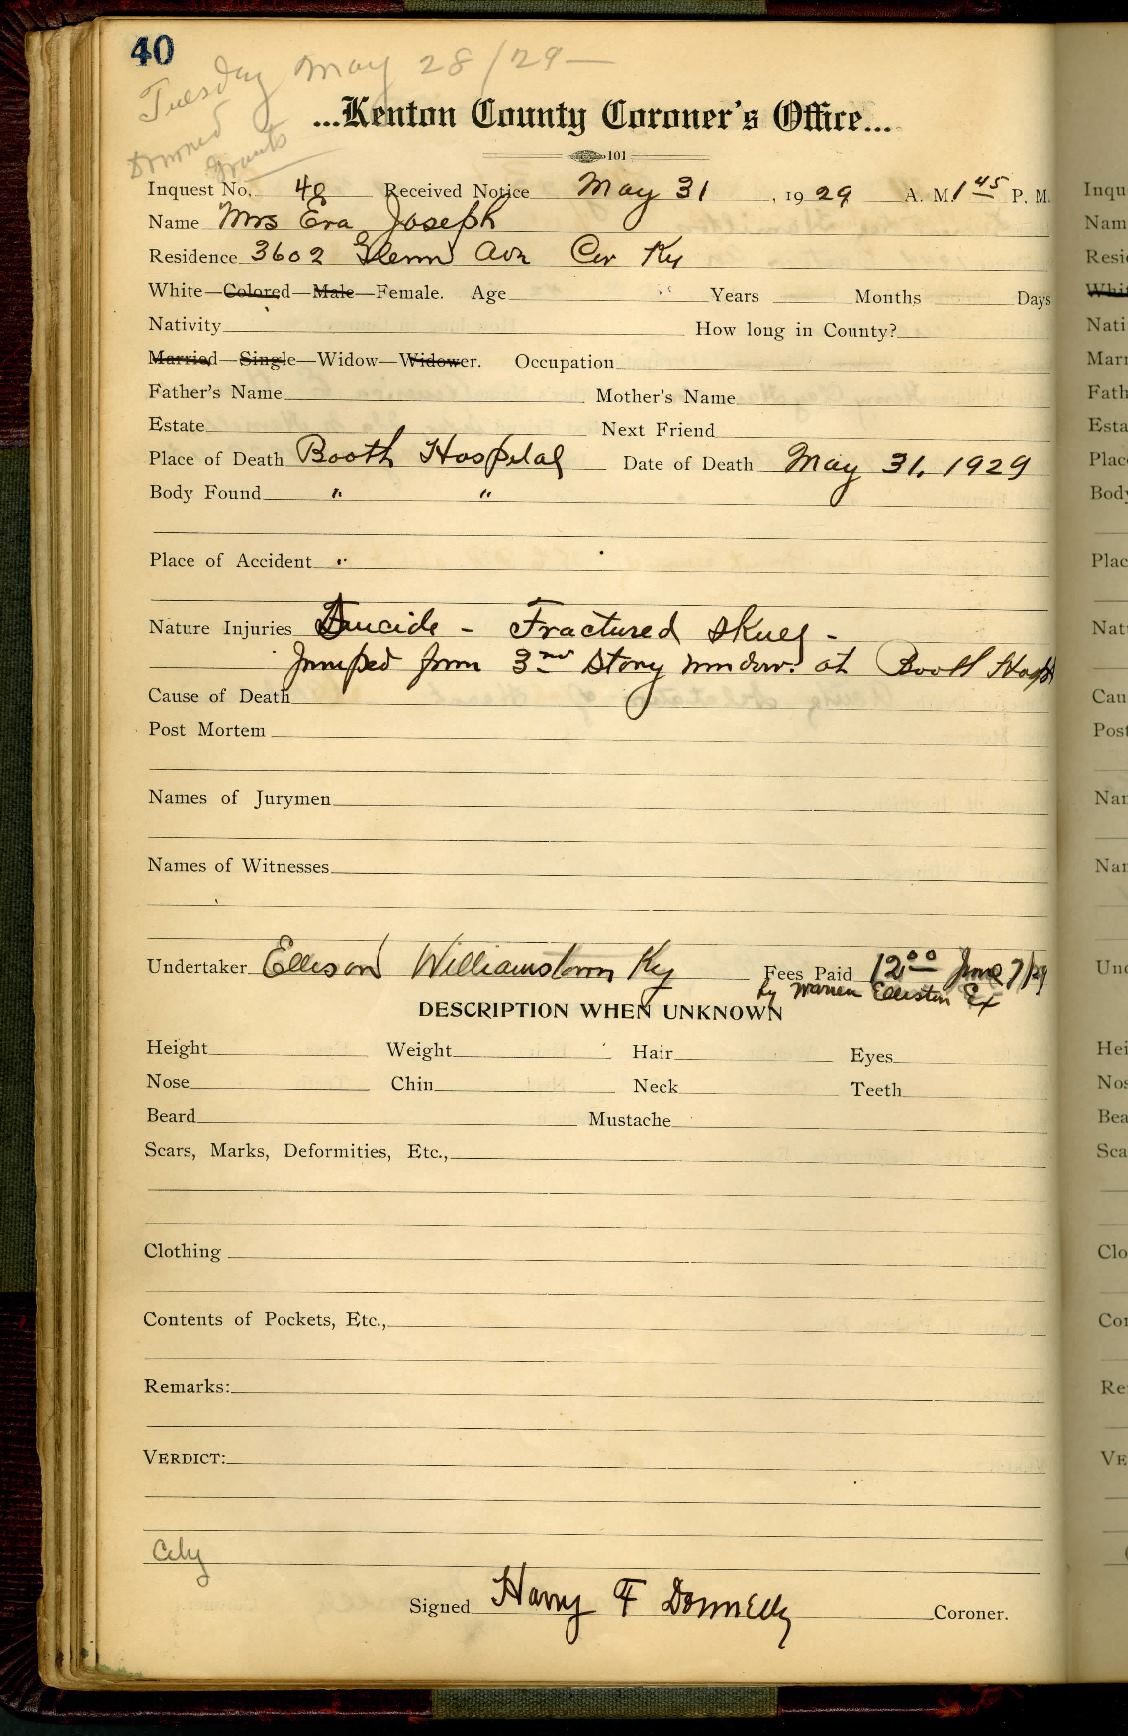 40
Tuesday May 28/29 —
Drowned
...Kenton County Coroner's Office...
101
Inquest No. 40 Received Notice May 31, 1929 A. M. 1 45 P. M.
Name Mrs Eva Joseph
Residence 3602 Glenn Ave Cov Ky
White—Colored—Male—Female. Age Years Months Days
Nativity How long in County?
Married—Single—Widow—Widower. Occupation
Father's Name Mother's Name
Estate Next Friend
Place of Death Booth Hospital Date of Death May 31, 1929
Body Found " "
Place of Accident "
Nature Injuries Suicide - Fractured Skull -
Jumped from 3rd Story window at Booth Hospt
Cause of Death
Post Mortem
Names of Jurymen
Names of Witnesses
Undertaker Ellison Williamstown Ky Fees Paid 12.00 June 7/29
by Warren Elliston Ex
DESCRIPTION WHEN UNKNOWN
Height Weight Hair Eyes
Nose Chin Neck Teeth
Beard Mustache
Scars, Marks, Deformities, Etc.,
Clothing
Contents of Pockets, Etc.,
Remarks:
VERDICT:
City
Signed Harry F Donnelly Coroner.